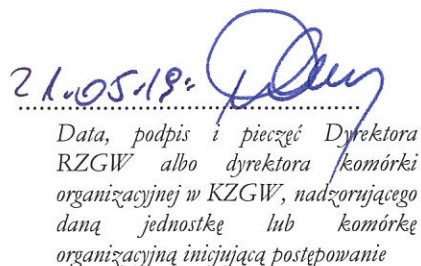 21.05.19.
Data, podpis i pieczęć Dyrektora
RZGW albo dyrektora komórki
organizacyjnej w KZGW, nadzorującego
daną jednostkę lub komórkę
organizacyjną inicjującą postępowanie